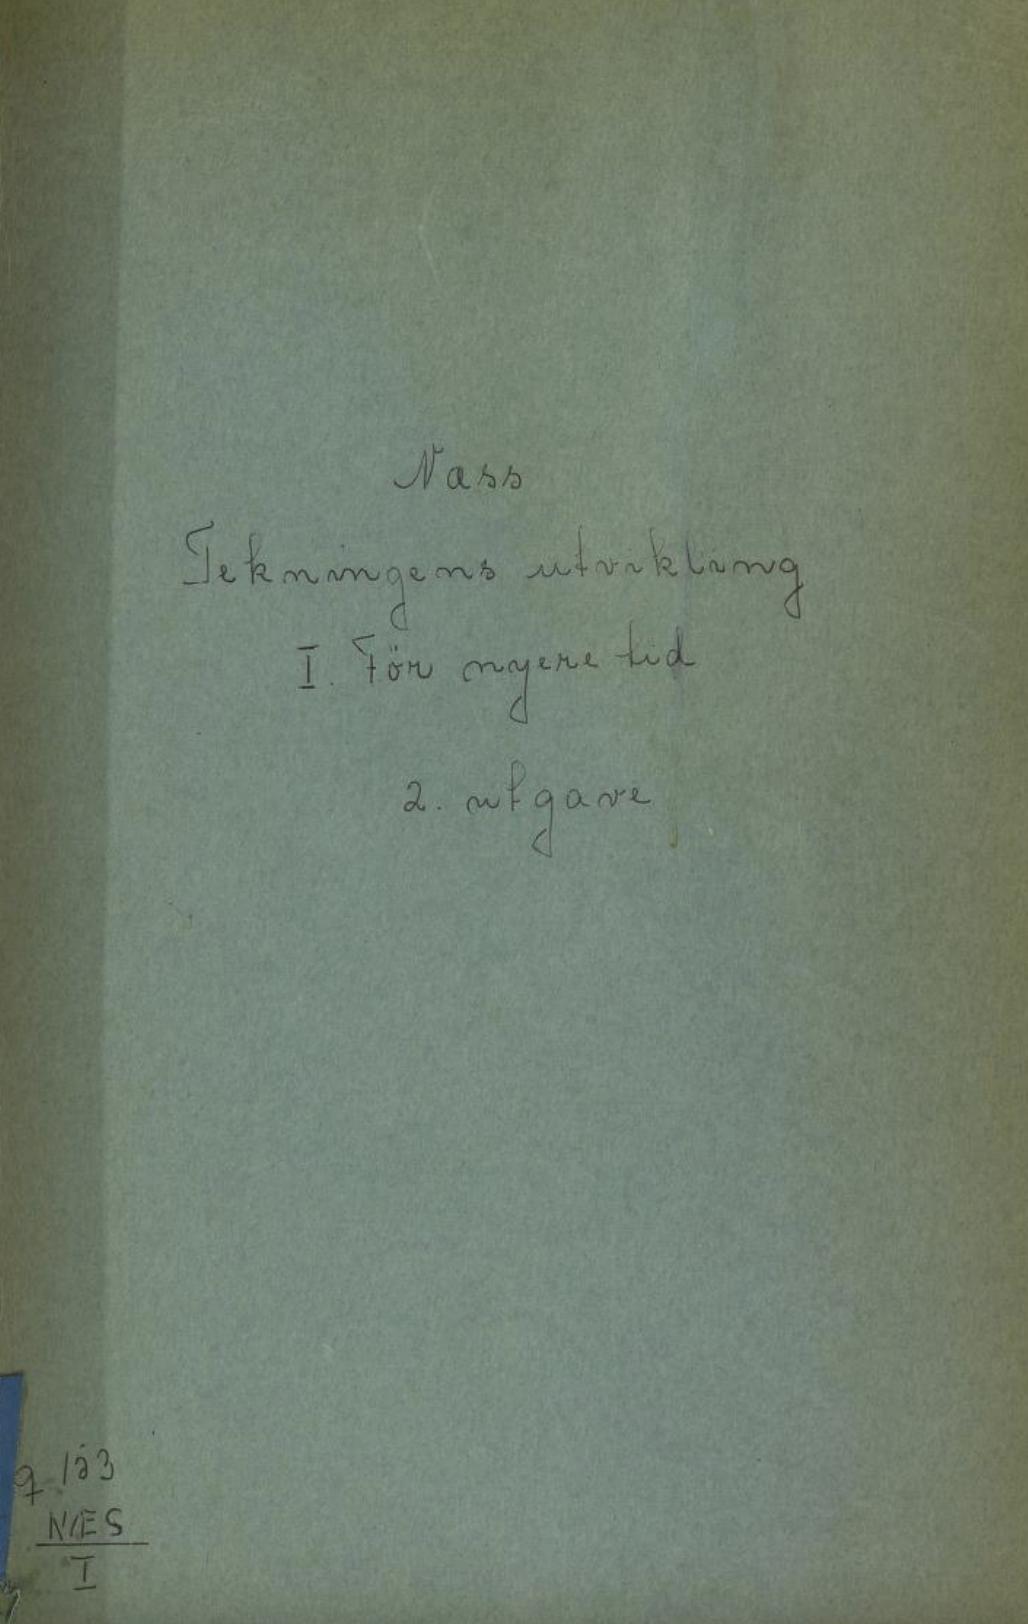 Næss
Tekningens utvikling
I. För nyere tid
2. utgave
q 123
NÆS
I